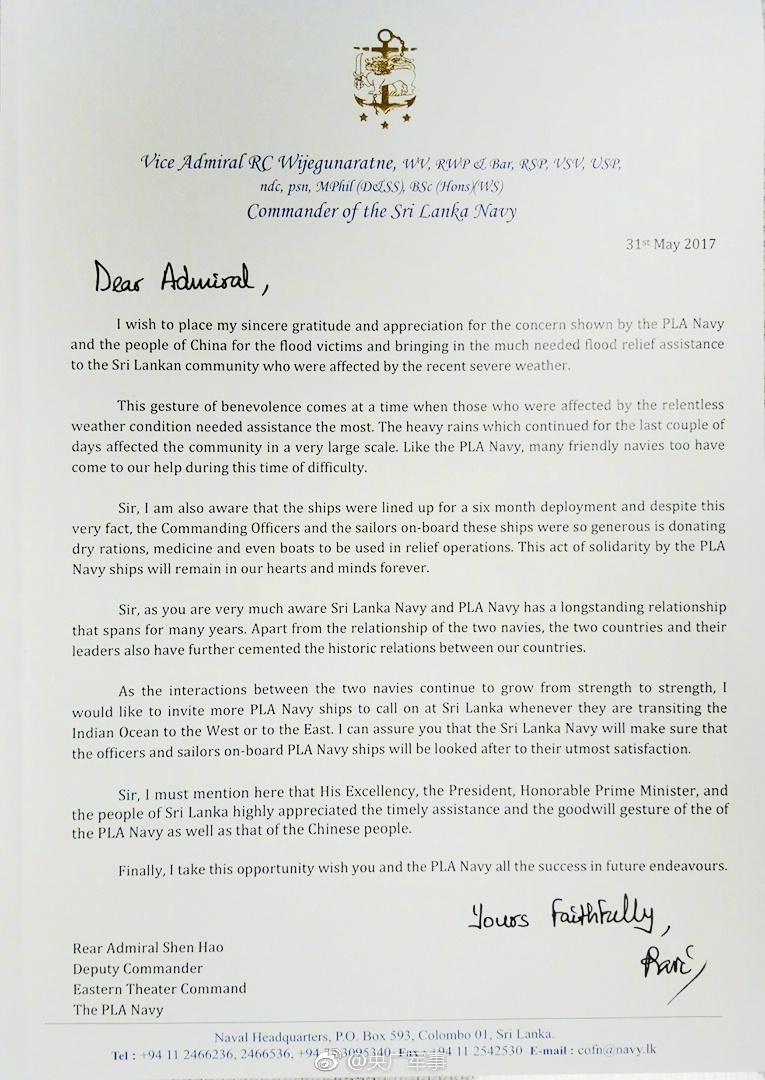 Vice Admiral RC Wijegunaratne, WV, RWP & Bar, RSP, VSV, USP,
ndc, psn, MPhil (D&SS), BSc (Hons)(WS)
Commander of the Sri Lanka Navy
31st May 2017
Dear Admiral,
I wish to place my sincere gratitude and appreciation for the concern shown by the PLA Navy
and the people of China for the flood victims and bringing in the much needed flood relief assistance
to the Sri Lankan community who were affected by the recent severe weather.
This gesture of benevolence comes at a time when those who were affected by the relentless
weather condition needed assistance the most. The heavy rains which continued for the last couple of
days affected the community in a very large scale. Like the PLA Navy, many friendly navies too have
come to our help during this time of difficulty.
Sir, I am also aware that the ships were lined up for a six month deployment and despite this
very fact, the Commanding Officers and the sailors on-board these ships were so generous is donating
dry rations, medicine and even boats to be used in relief operations. This act of solidarity by the PLA
Navy ships will remain in our hearts and minds forever.
Sir, as you are very much aware Sri Lanka Navy and PLA Navy has a longstanding relationship
that spans for many years. Apart from the relationship of the two navies, the two countries and their
leaders also have further cemented the historic relations between our countries.
As the interactions between the two navies continue to grow from strength to strength, I
would like to invite more PLA Navy ships to call on at Sri Lanka whenever they are transiting the
Indian Ocean to the West or to the East. I can assure you that the Sri Lanka Navy will make sure that
the officers and sailors on-board PLA Navy ships will be looked after to their utmost satisfaction.
Sir, I must mention here that His Excellency, the President, Honorable Prime Minister, and
the people of Sri Lanka highly appreciated the timely assistance and the goodwill gesture of the of
the PLA Navy as well as that of the Chinese people.
Finally, I take this opportunity wish you and the PLA Navy all the success in future endeavours.
Yours Faithfully,
Ravi
Rear Admiral Shen Hao
Deputy Commander
Eastern Theater Command
The PLA Navy
Naval Headquarters, P.O. Box 593, Colombo 01, Sri Lanka.
Tel : +94 11 2466236, 2466536, +94 Fax : +94 11 2542530 E-mail : cofn@navy.lk
@央广军事